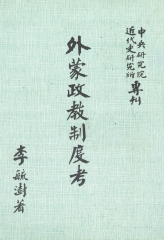 中央研究院
近代史研究所
專刊
外蒙政教制度考
李毓澍著